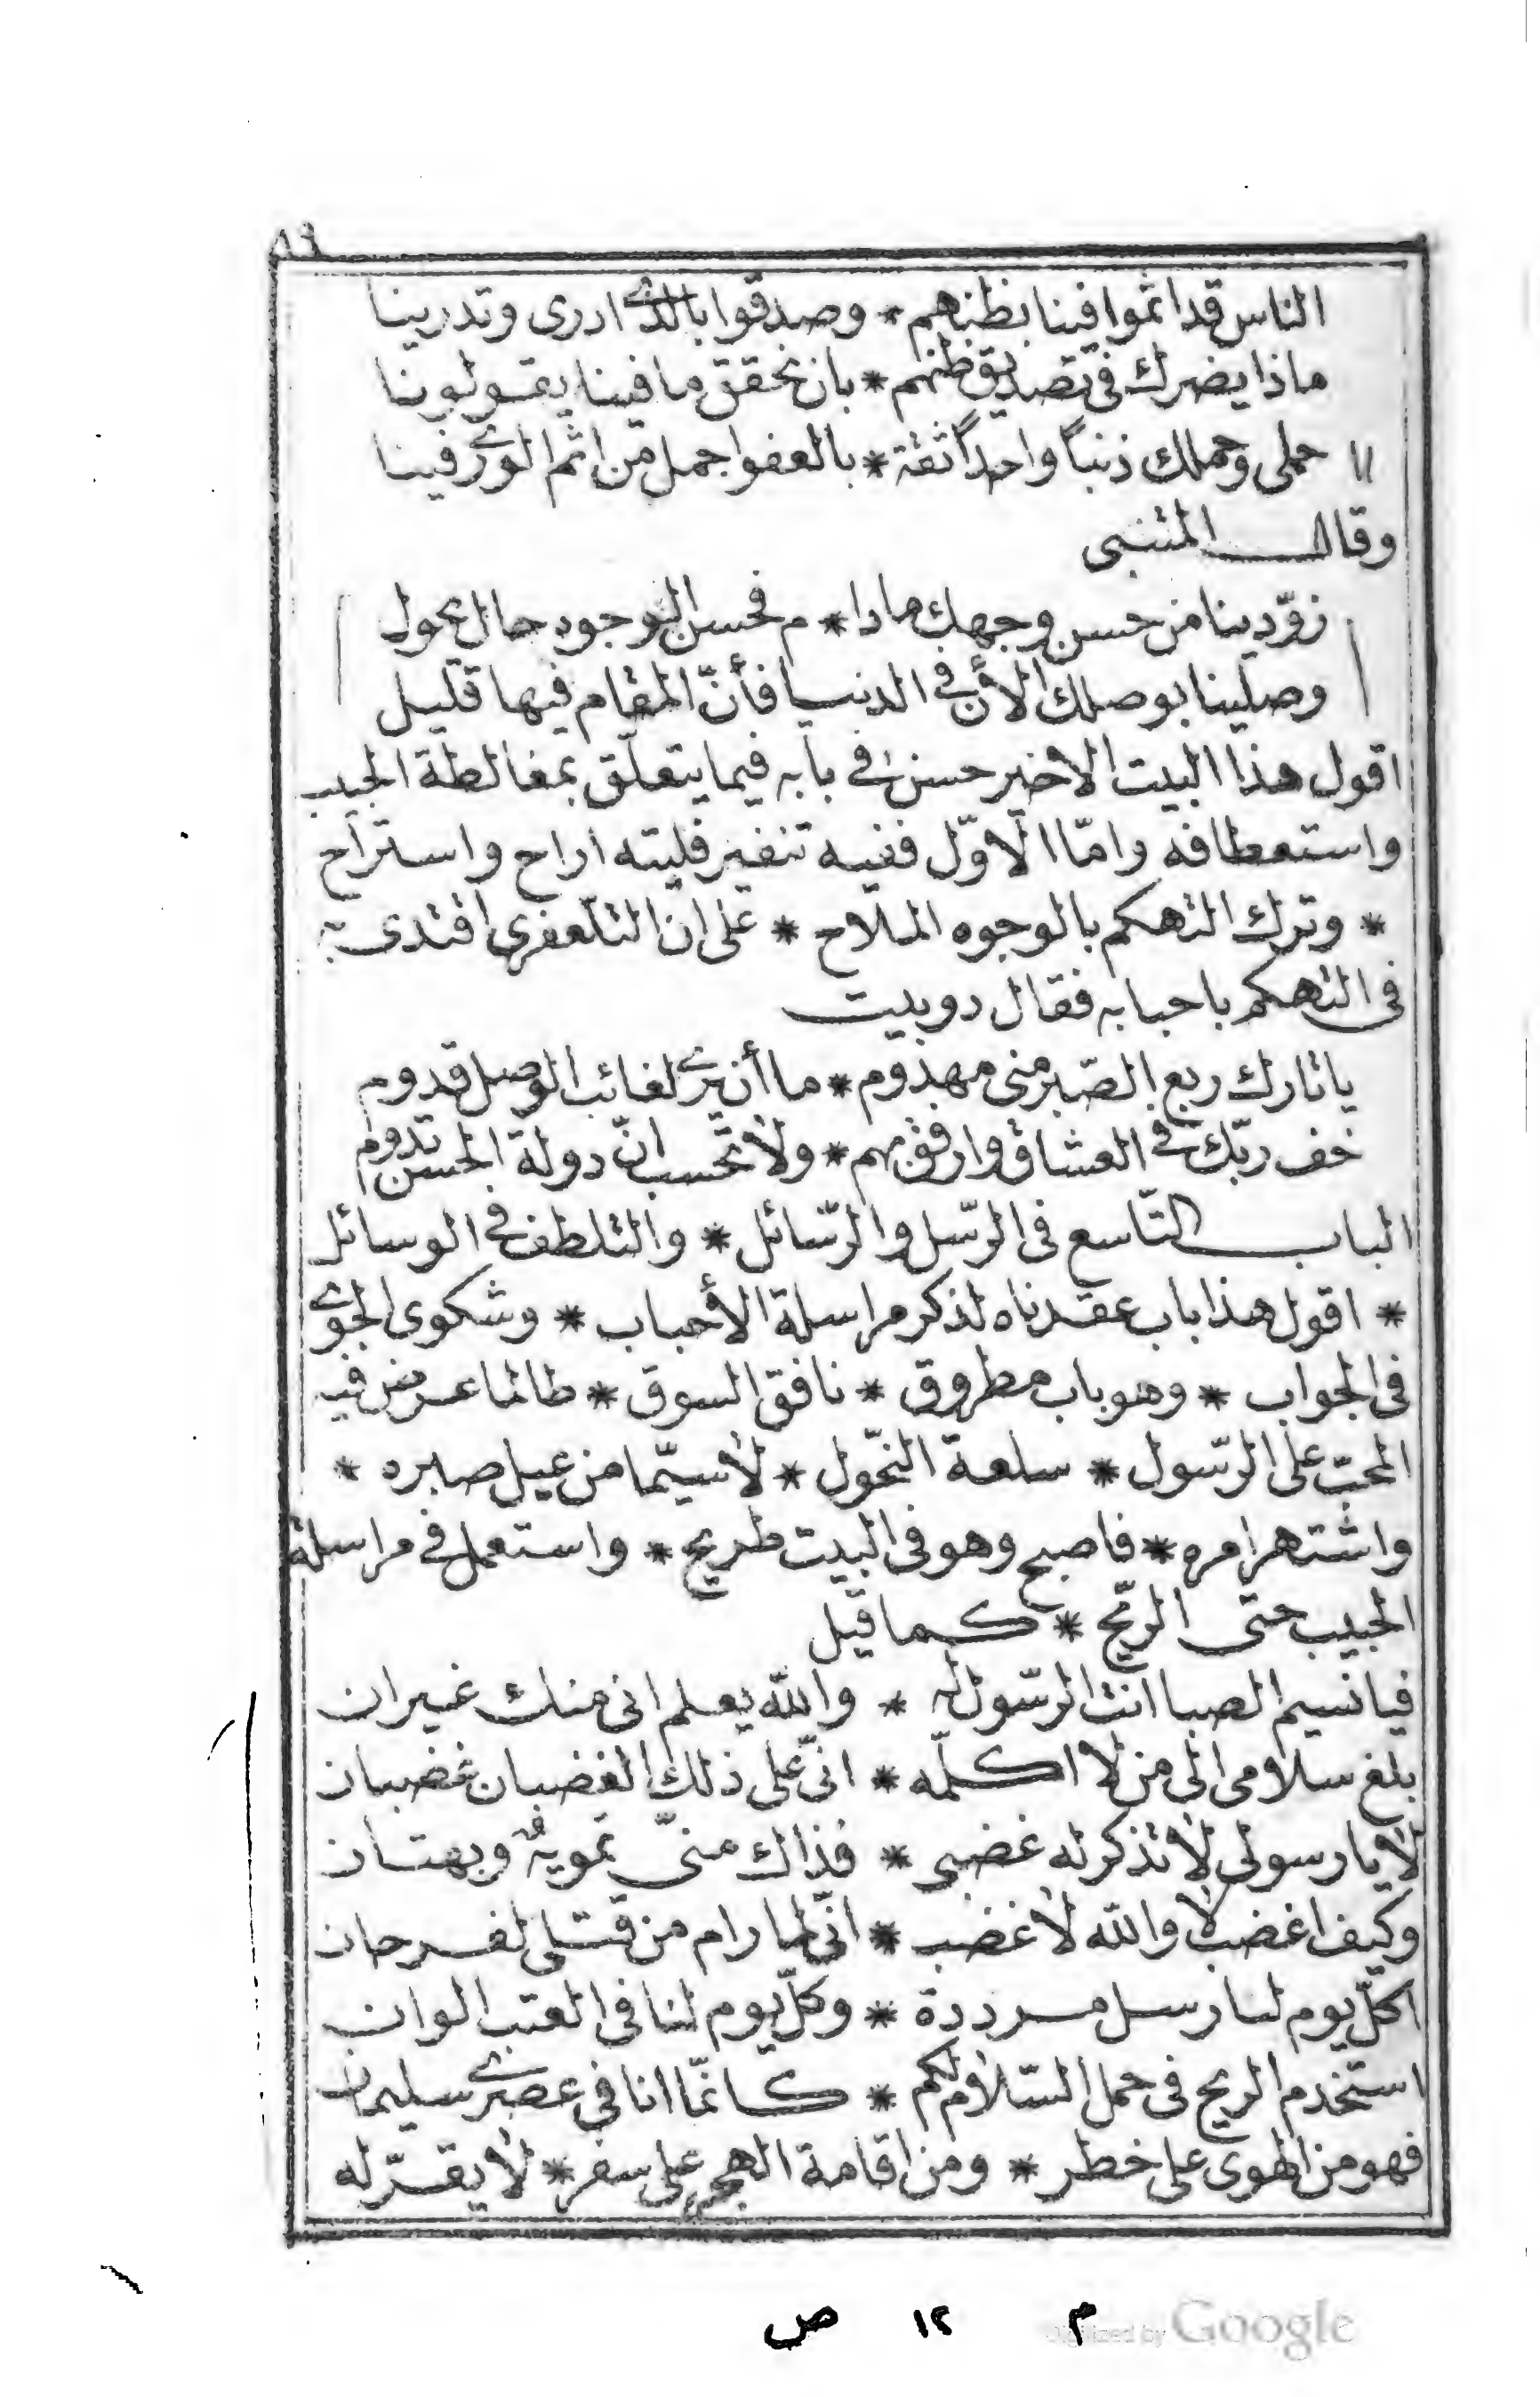 ٨٩
الناس قد اثموا فينا بظنهم * وصدقوا بالذي ادرى وتدرينا
ماذا يضرك فى تصديق ظنهم * بان نحقق ما فينا يقولونا
حملى وحملك ذنباً واحداً ثقة * بالعفو اجمل من اثم الورى فينا
وقال المتنبى
زوّدينا من حسن وجهك ما دا * م فحسن الوجوه حال تحول
وصلينا بوصلك الأن في الدنيا فأنّ المقام فيها قليل
اقول هذا البيت الاخير حسنٌ في بابه فيما يتعلّق بمغالطة الحبيب
واستعطافه وامّا الاوّل ففيه تنفير فليته اراح واستراح
* وترك التهكم بالوجوه الملاح * على ان التلّعفرى اقتدى به
فى التهكم باحبابه فقال دوبيت
يا تارك ربع الصّبر منى مهدوم * ما أن يرى لغائب الوصل قدوم
خف ربّك في العشاق وارفق بهم * ولا تحسب انّ دولة الحسن تدوم
الباب التّاسع فى الرّسل والرّسائل * والتلطف في الوسائل
* اقول هذا باب عقدناه لذكر مراسلة الأحباب * وشكوى الجوي
فى الجواب * وهو باب مطروق * نافق السوق * طالما عرض فيه
المحبّ على الرّسول * سلعة النّحول * لاسيّما من عيل صبره *
واشتهر امره * فاصبح وهو فى البيت طريح * واستعمل في مراسلة
الحبيب حتى الرّيح * كما قيل
فيا نسيم الصبا انت الرّسول له * والله يعلم انى منك غيران
بلغ سلامى الى من لا اكلّمه * انّى على ذلك الغضبان غضبان
لا يا رسولى لا تذكر له غضبى * فذاك منىّ تمويهٌ وبهتان
وكيف اغضب لا والله لا غضب * انّى لما رام من قتلى لفرحان
اكلّ يوم لنا رسل مرددة * وكلّ يوم لنا فى العتب الوان
استخدم الريح فى حمل السّلام لكم * كانمّا انا فى عصرى سليمان
فهو من الهوى على خطر * ومن اقامة الهجر على سفر * لا يقرّ له
م ١٢ ص
Digitized by Google